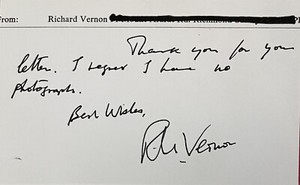 From: Richard Vernon
Thank you for your
letter. I regret I have no
photographs.
Best Wishes,
R Vernon